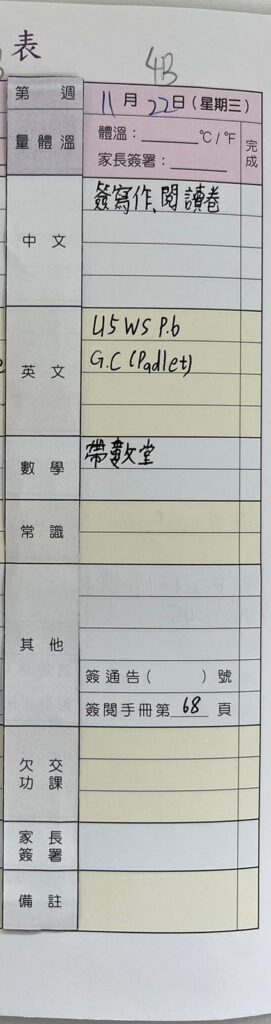 表
4B
第 週
11月22日(星期三)
量體溫
體溫:______℃/℉
家長簽署:______
完成
中文
簽寫作、閱讀卷
英文
U5 WS P.6
G.C (Padlet)
數學
帶數堂
常識
其他
簽通告( )號
簽閱手冊第 68 頁
欠交功課
家長簽署
備註